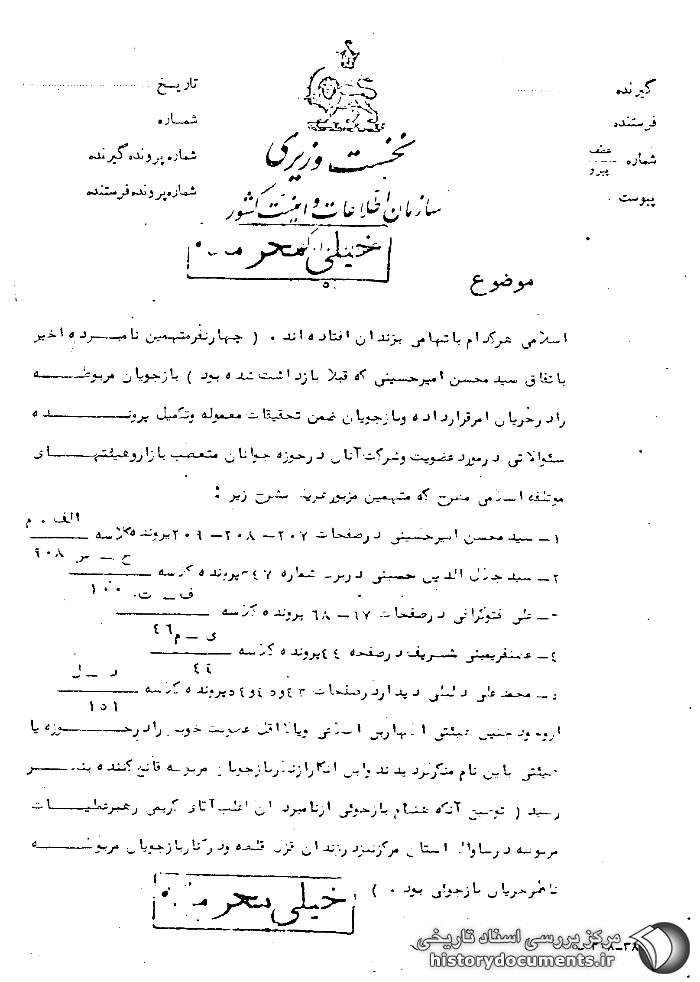 گیرنده
فرستنده
شماره عطف پیرو
پیوست
تاریخ
شماره
شماره پرونده گیرنده
شماره پرونده فرستنده
نخست وزیری
سازمان اطلاعات و امنیت کشور
خیلی محرمانه
موضوع
اسلامی هرکدام باتهامی بزندان افتاده اند . ( چهارنفرمتهمین نامبرده اخیر
باتفاق سید محسن امیرحسینی که قبلا بازداشت شده بود ) بازجویان مربوطه
رادرجریان امرقرارداده وبازجویان ضمن تحقیقات معموله وتکمیل پرونده
سئوالاتی درمورد عضویت وشرکت آنان درحوزه جوانان متعصب بازاروهیئتهای
موتلفه اسلامی مطرح که متهمین مزبور بشرح زیر :
۱ – سید محسن امیرحسینی درصفحات ۲۰۷ – ۲۰۸ – ۲۰۹ پرونده کلاسه الف . م
۲ – سید جلال الدین حسینی دربرگ شماره ۳۴۷ پرونده کلاسه ح – س ۹۰۸
۳ – علی درصفحات ۶۷ – ۶۸ پرونده کلاسه ف – ت ۱۰۰
۴ – شریف درصفحه ۴۴ پرونده کلاسه ی – م ۴۶
۵ – محمدعلی درصفحات ۴۳ و ۴۵ و ۵۴ پرونده کلاسه د – ل ۴۴
۱۵۱
ازوجود چنین هیئتی اظهاربی اطلاعی ویالااقل عضویت خود رادرحوزه یا
هیئتی باین نام منکرگردیدند واین انکارازنظربازجویان مربوطه قانع کننده بنظر
رسید ( توضیح آنکه هنگام بازجوئی ازنامبردگان اغلب آقای کریمی رهبرعملیات
مربوطه درساواک استان مرکزنیزدرزندان قزل قلعه ودرکناربازجویان مربوطه
ناظرجریان بازجوئی بود . )
خیلی محرمانه
مرکز بررسی اسناد تاریخی
historydocuments.ir